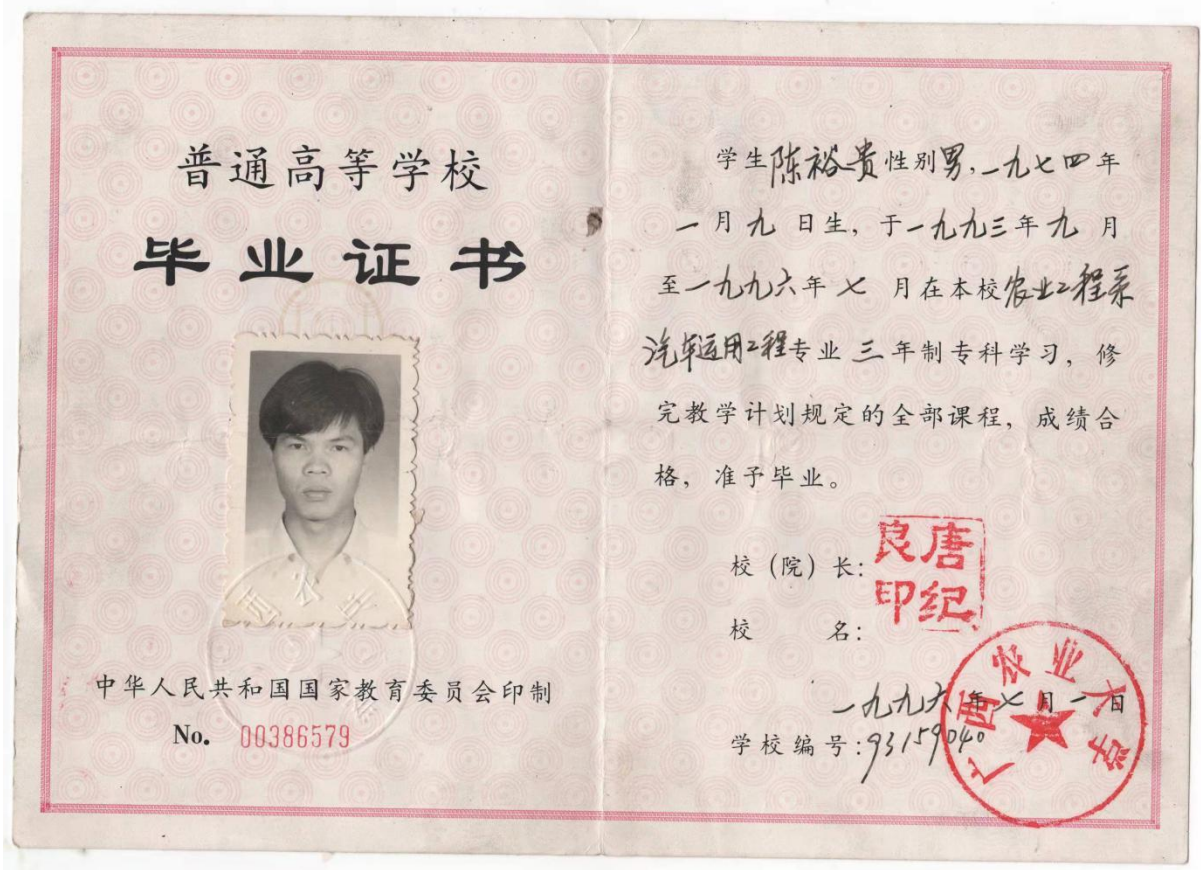 普通高等学校
毕业证书
中华人民共和国国家教育委员会印制
No. 00386579
学生陈裕贵性别男，一九七四年
一月九日生，于一九九三年九月
至一九九六年七月在本校农业工程系
汽车运用工程专业三年制专科学习，修
完教学计划规定的全部课程，成绩合
格，准予毕业。
校（院）长：
唐纪良印
校名：
广西农业大学
一九九六年七月一日
学校编号：93159040